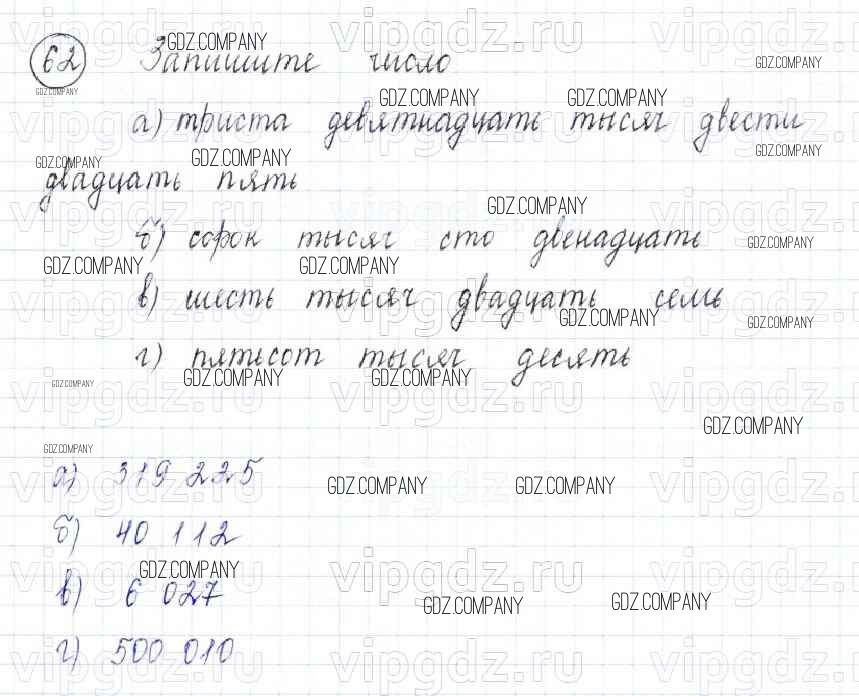 62 Запишите число
а) триста девятнадцать тысяч двести
двадцать пять
б) сорок тысяч сто двенадцать
в) шесть тысяч двадцать семь
г) пятьсот тысяч десять
а) 319 225
б) 40 112
в) 6 027
г) 500 010